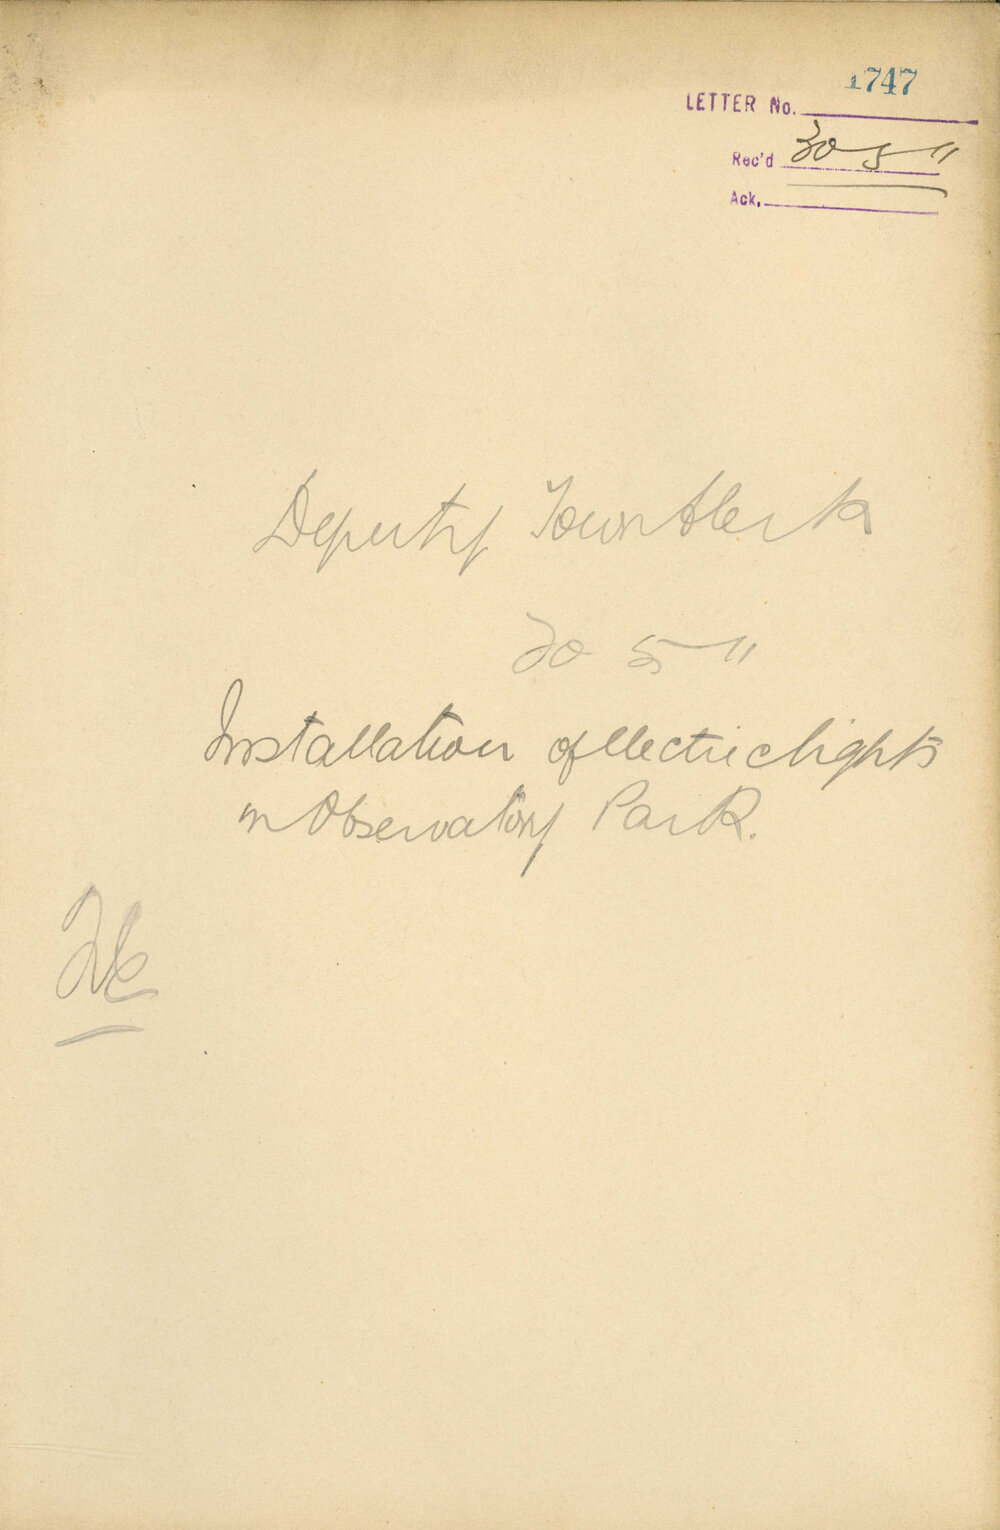 1747
LETTER No.
Rec'd 30 5 11
Ack.
Deputy Town Clerk
30 5 11
Installation of Electric lights
in Observatory Park.